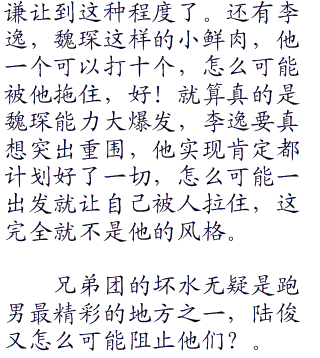 谦让到这种程度了。还有李
逸，魏琛这样的小鲜肉，他
一个可以打十个，怎么可能
被他拖住，好！就算真的是
魏琛能力大爆发，李逸要真
想突出重围，他实现肯定都
计划好了一切，怎么可能一
出发就让自己被人拉住，这
完全就不是他的风格。
兄弟团的坏水无疑是跑
男最精彩的地方之一，陆俊
又怎么可能阻止他们？。